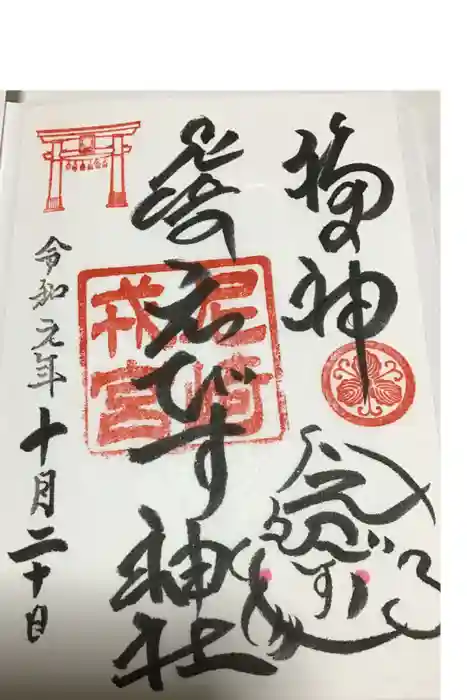 福の神
尼崎えびす神社
尼崎
戎宮
令和元年十月二十日